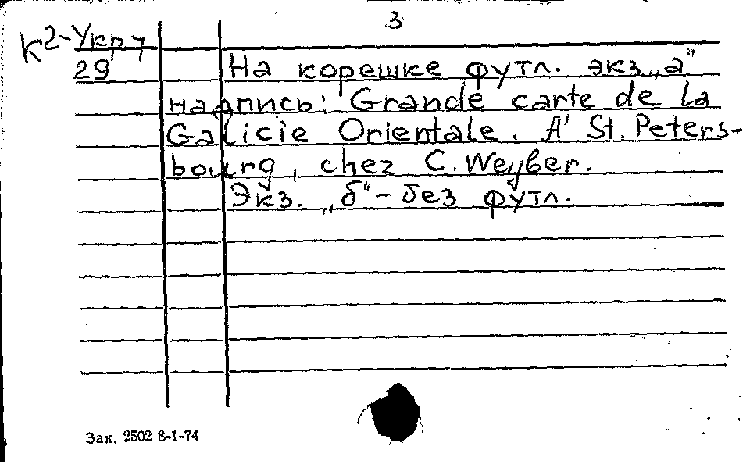 3
К2-Укр 7
29
На корешке футл. экз. „а"
надпись: Grande carte de la
Galicie Orientale. A' St. Peters-
bourg, chez C. Weyber.
Экз. „б" – без футл.
Зак. 2502 8-1-74